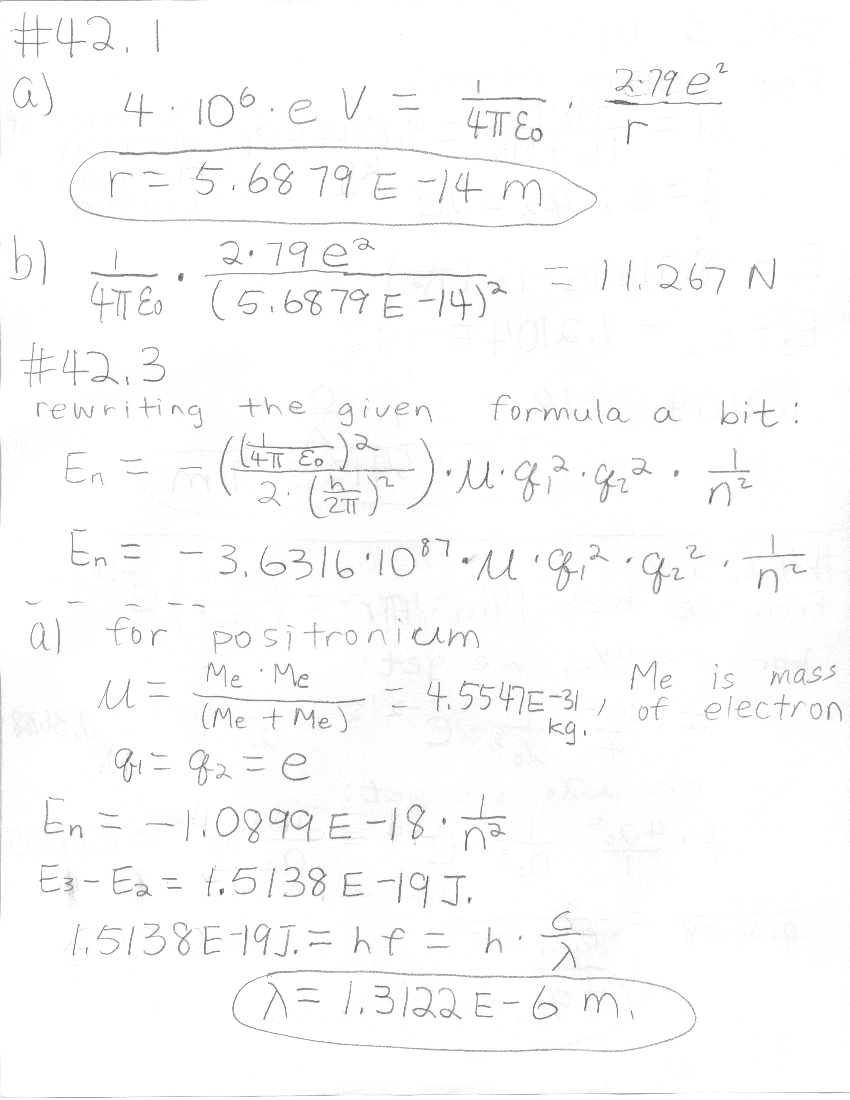 #42.1
a) 4 · 10⁶ · e V = 1/(4πε₀) · 2·79e²/r
r = 5.6879 E -14 m
b) 1/(4πε₀) · 2·79e²/(5.6879 E -14)² = 11.267 N
#42.3
rewriting the given formula a bit:
Eₙ = -((1/(4π ε₀))²/(2·(h/2π)²)) · μ · q₁² · q₂² · 1/n²
Eₙ = -3.6316·10⁸⁷ · μ · q₁² · q₂² · 1/n²
a) for positronium
μ = Me · Me/(Me + Me) = 4.5547E-31 kg., Me is mass of electron
q₁ = q₂ = e
Eₙ = -1.0899 E -18 · 1/n²
E₃ - E₂ = 1.5138 E -19 J.
1.5138E-19J. = hf = h · c/λ
λ = 1.3122 E - 6 m.